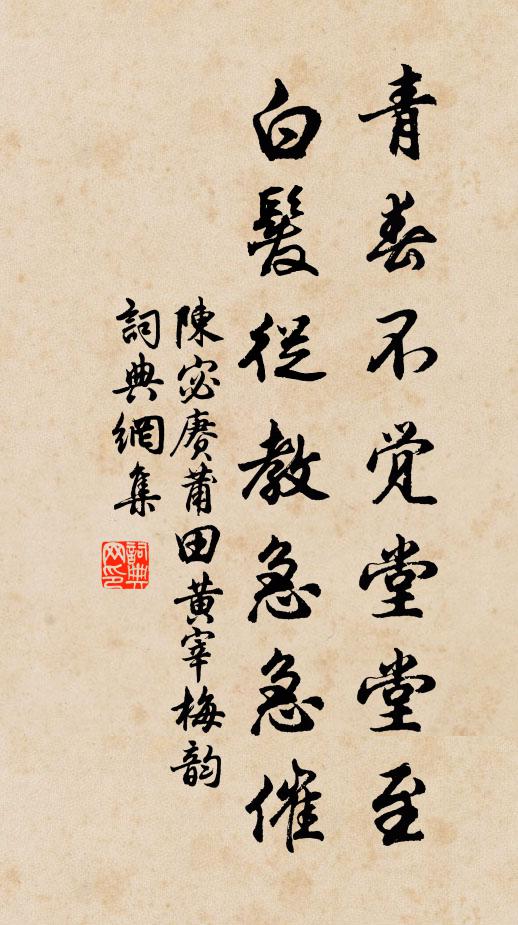 青春不觉堂堂至
白髮從教急急催
陳宓賡莆田黃宰梅韵
詞典網集
詞典网印